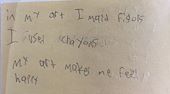 in my art I maed Figols
I usel crayons
my art makes me feel
happy